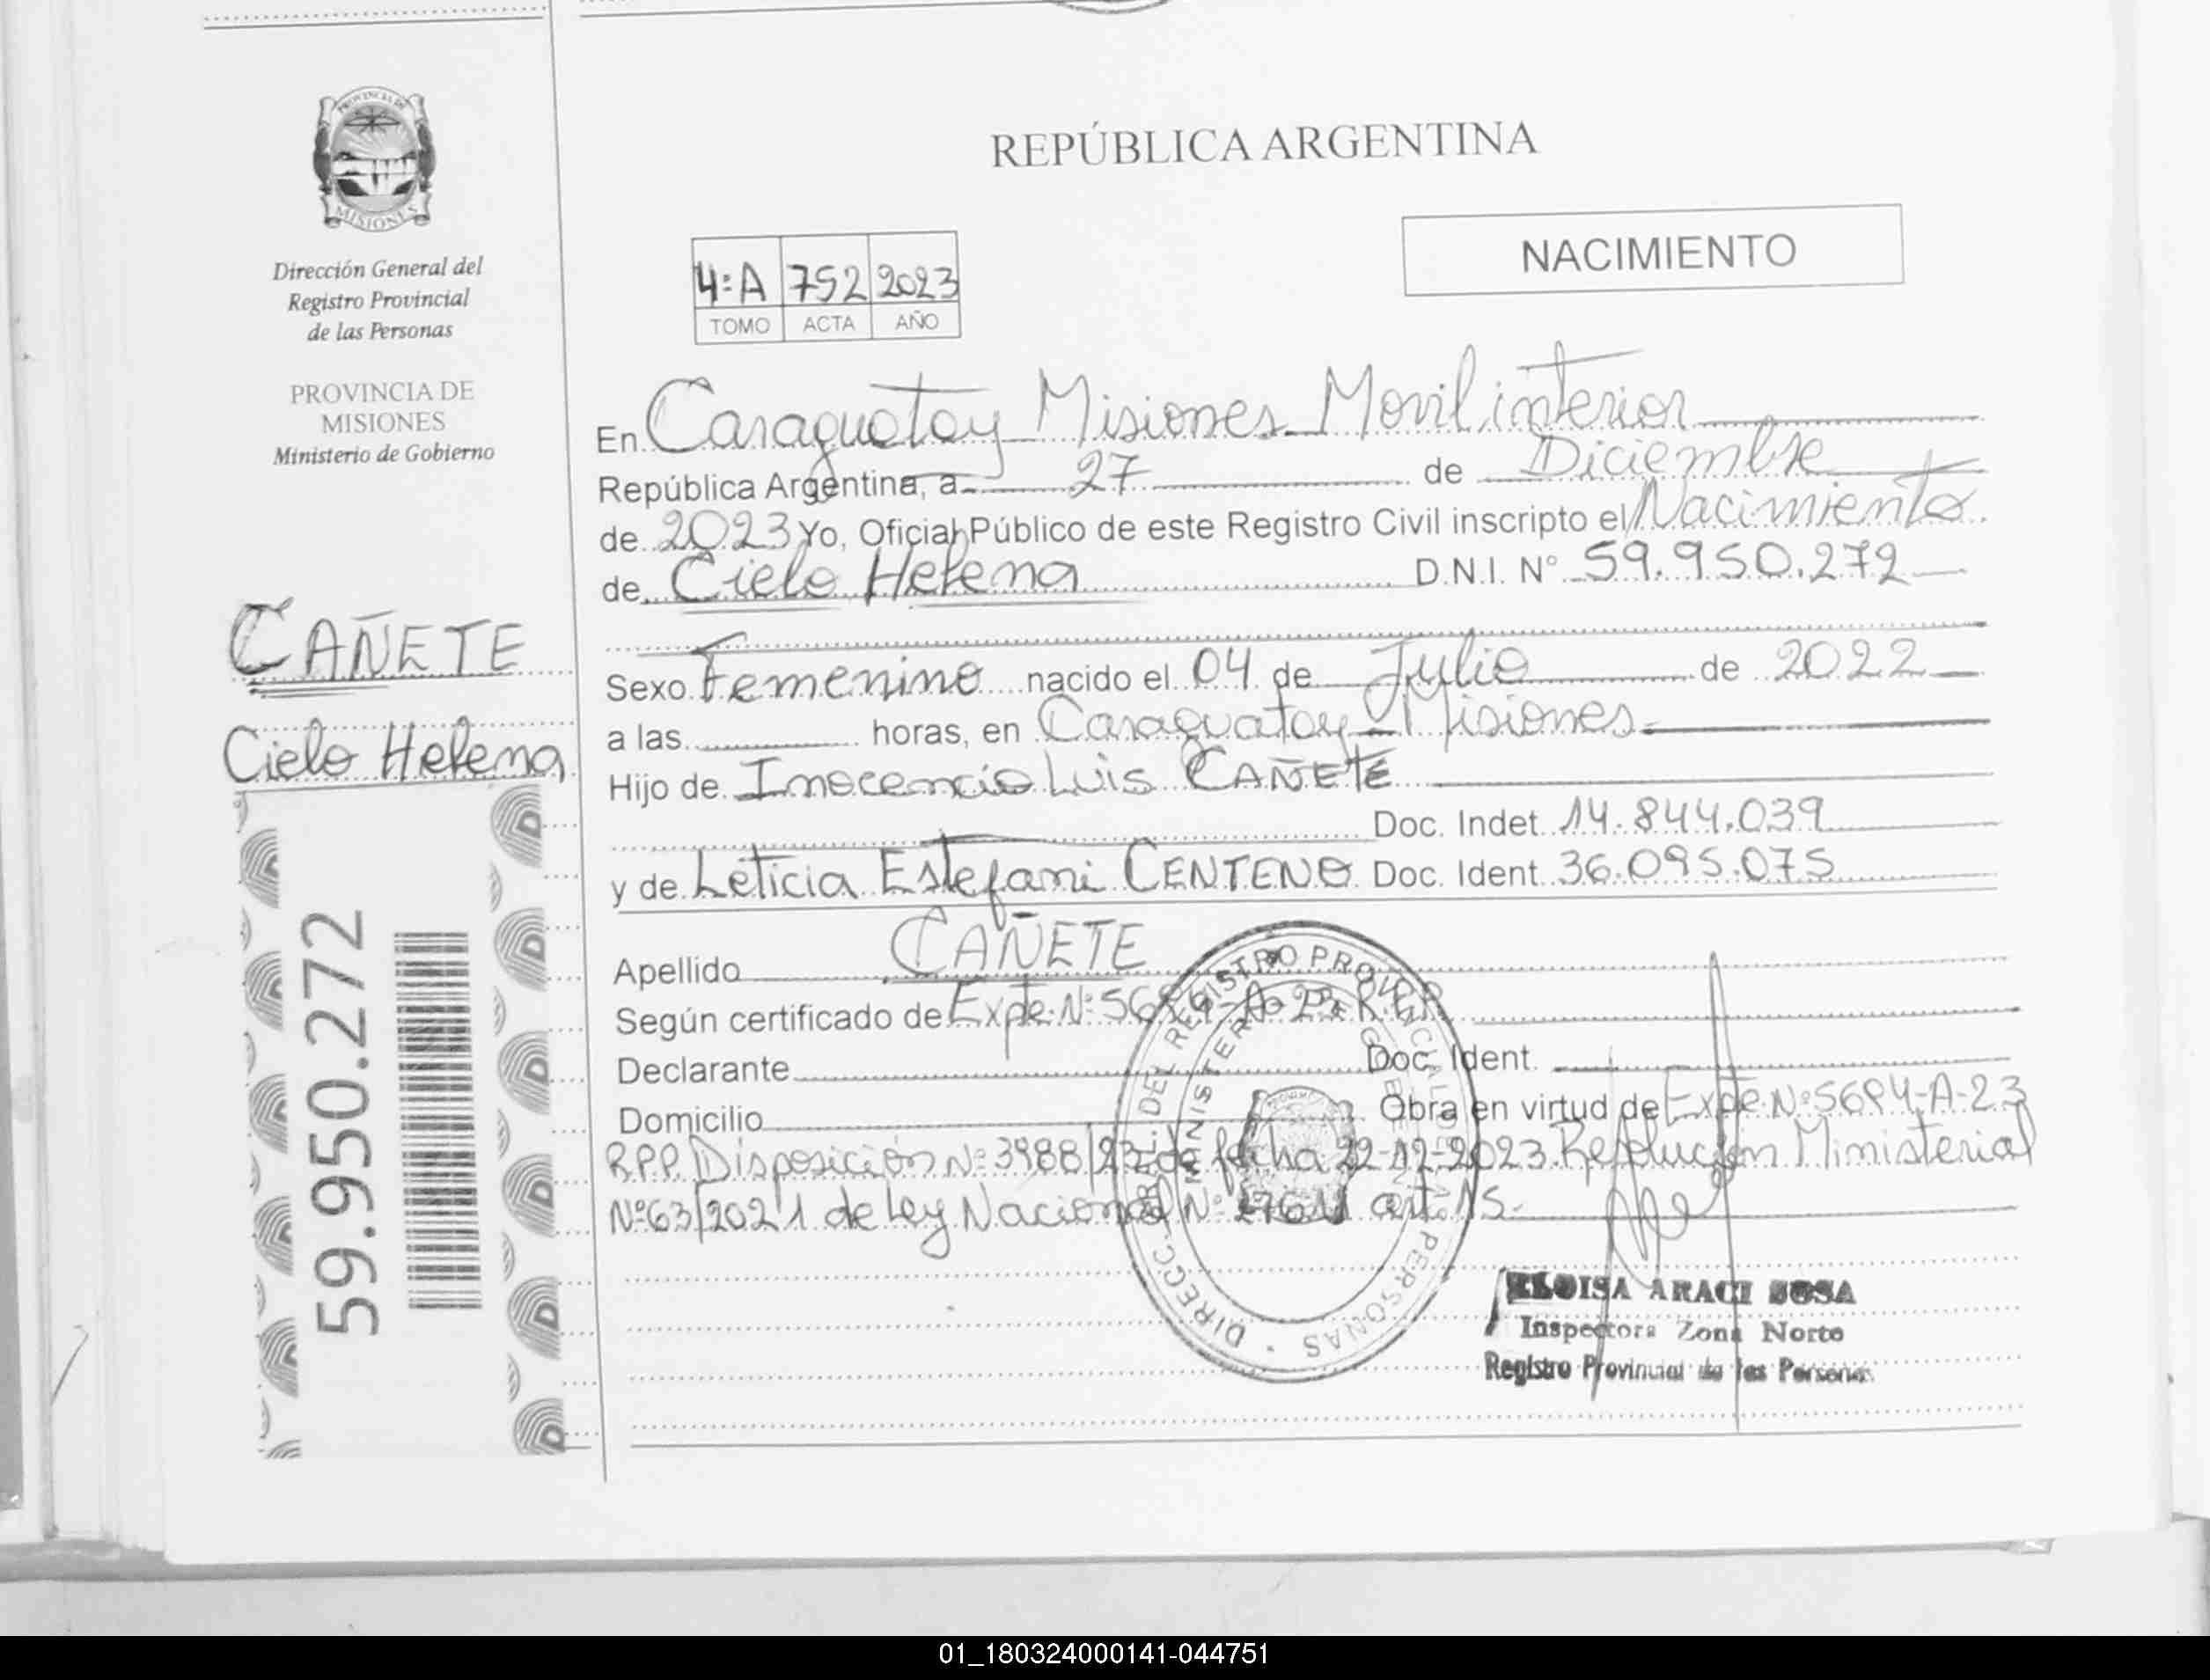 PROVINCIA DE
MISIONES
Dirección General del
Registro Provincial
de las Personas
PROVINCIA DE
MISIONES
Ministerio de Gobierno
CAÑETE
Cielo Helena
59.950.272
REPÚBLICA ARGENTINA
NACIMIENTO
4:A 752 2023
TOMO ACTA AÑO
En Caraguatay Misiones Movil interior
República Argentina, a 27 de Diciembre
de 2023 Yo, Oficial Público de este Registro Civil inscripto el Nacimiento
de Cielo Helena D.N.I. N° 59.950.272
Sexo Femenino nacido el 04 de Julio de 2022
a las horas, en Caraguatay - Misiones
Hijo de Inocencio Luis CAÑETE
Doc. Indet. 14.844.039
y de Leticia Estefani CENTENO Doc. Ident. 36.095.075
Apellido CAÑETE
Según certificado de Expte N:
Declarante Doc. Ident.
Domicilio Obra en virtud de Expte N°5694-A-23
R.P.P. Disposición N° 3988/23 de fecha 22-12-2023 Resolución Ministerial
N°63/2021 de Ley Nacional N° art. 15.
DIRECC. GR. DEL REGISTRO PROVINCIAL DE LAS PERSONAS
MINISTERIO DE GOBIERNO
ELOISA ARACI SOSA
Inspectora Zona Norte
Registro Provincial de las Personas
01_180324000141-044751